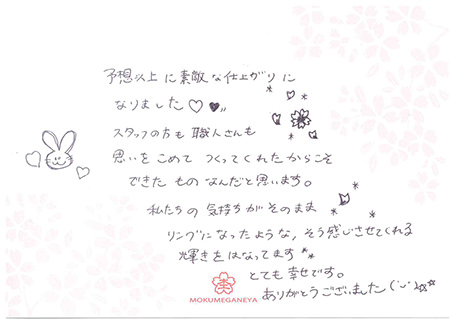 予想以上に素敵な仕上がりに
なりました♡♥
スタッフの方も職人さんも
思いをこめてつくってくれたからこそ
できたものなんだと思います。
私たちの気持ちがそのまま
リングになったような、そう感じさせてくれる
輝きをはなってます
とても幸せです。
ありがとうございました(¨)☆☆
MOKUMEGANEYA